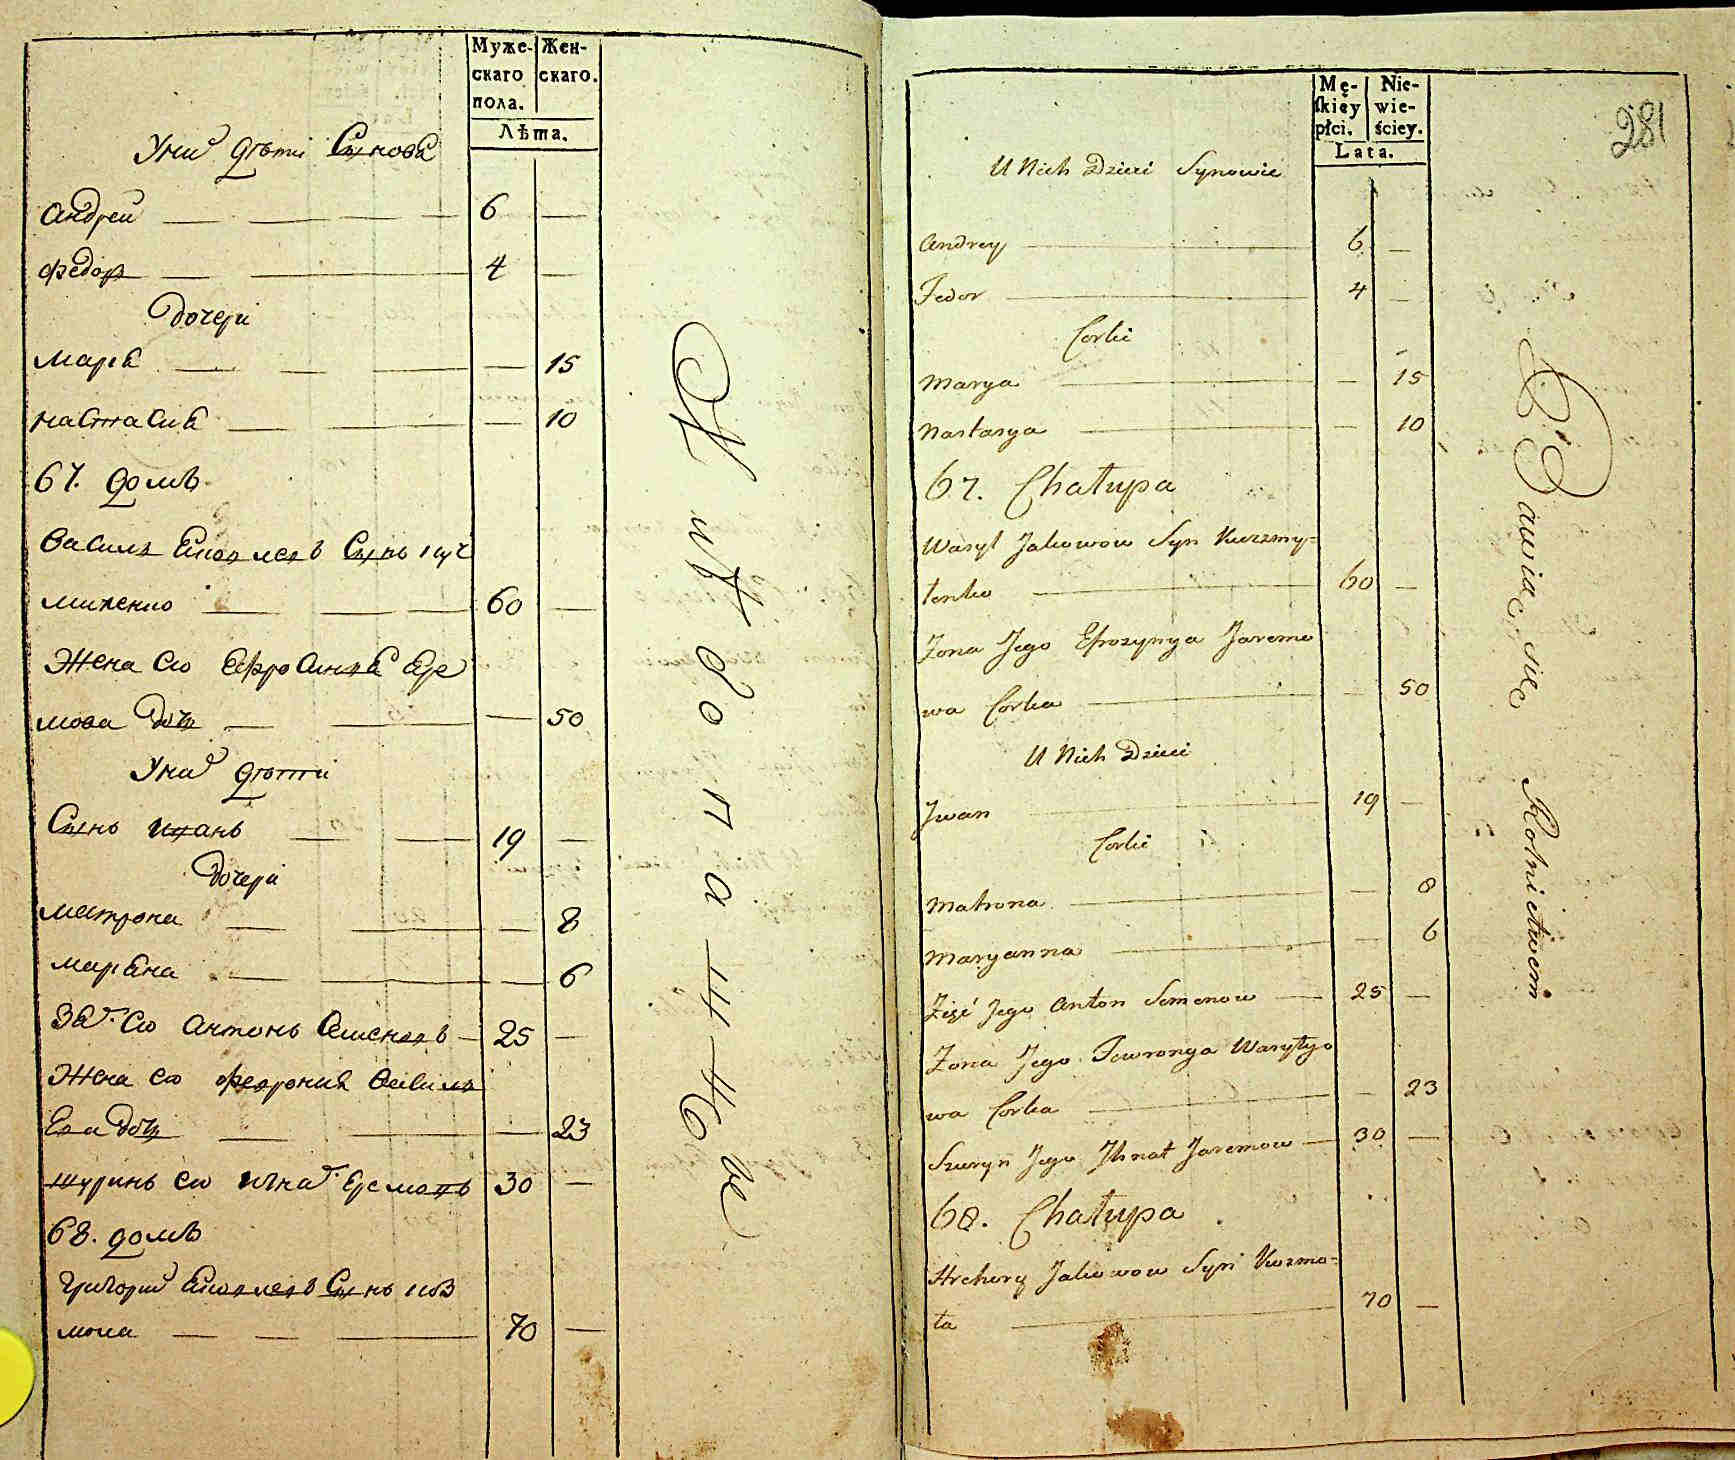 Муже-
скаго
пола.
Жен-
скаго.
Лѣта.
Униⷯ дѣти Сынове
Андрей 6
Федор 4
Дочери
Маря 15
Настасия 10
67. домъ
Василь Яковлевъ Сынъ
60
Жена его Ефросиния Ере
мова дочь 50
Униⷯ дѣти
Сынъ Иванъ 19
Дочери
Матрона 8
Маряна 6
Зяⷮ его Антонъ Семеновъ 25
Жена его Феврония Василь
ева дочь 23
Шуринъ его Игнаⷮ Еремовъ 30
68. домъ
Григорий Яковлевъ Сынъ
70
Mę-
skiéy
płci.
Nie-
wie-
ściey.
Lata.
281
U Nich Dzieci Synowie
Andrey 6
Fedor 4
Corki
Marya 15
Nastasya 10
67. Chałupa
Wasyl Jakowow Syn Kuczmy=
lenko 60
Zona Jego Efrozynya Jaremo
wa Corka 50
U Nich Dzieci
Jwan 19
Corki
Matrona 8
Maryanna 6
Zięć Jego Anton Semenow 25
Zona Jego Fewronya Wasylijo
wa Corka 23
Szuryn Jego Jhnat Jaremow 30
68. Chałupa
Hrehory Jakowow Syn
70
Bawiąc się Rolnictwem